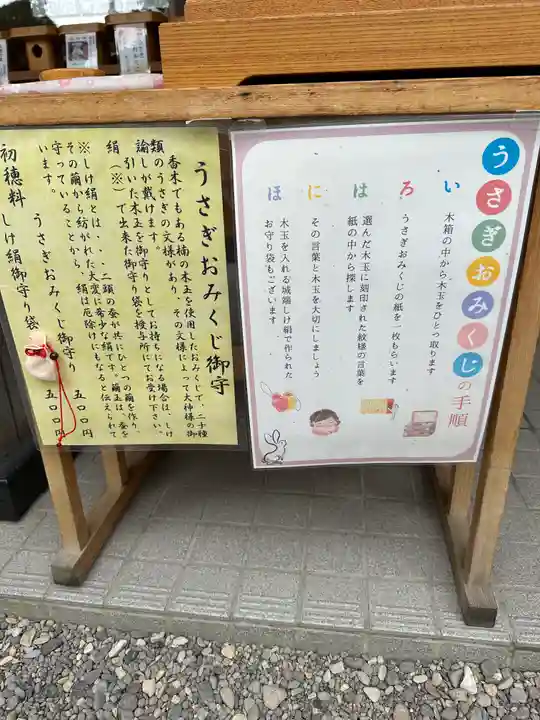 うさぎおみくじの手順
い 木箱の中から木玉をひとつ取ります
ろ うさぎおみくじの紙を一枚もらいます
は 選んだ木玉に刻印された紋様の言葉を
紙の中から探します
に その言葉と木玉を大切にしましょう
ほ 木玉を入れる城端しけ絹で作られた
お守り袋もございます
うさぎおみくじ御守
香木でもある楠の木玉を使用したおみくじで、二十種
類のうさぎの文様があり、その文様によって大神様の御
諭しが戴けます。御守りとしてお持ちになる場合は、しけ
絹(※)で出来た御守り袋を授与所にてお受け下さい。
引いた木玉を
※しけ絹とは、、、二頭の蚕が共にひとつの繭を作り、
その繭から紡がれた、大変に希少な絹です。繭玉は、蚕を
守っていることから、しけ絹は厄除けにもなると伝えられて
います。
初穂料
うさぎおみくじ御守り 五〇〇円
しけ絹御守り袋 五〇〇円